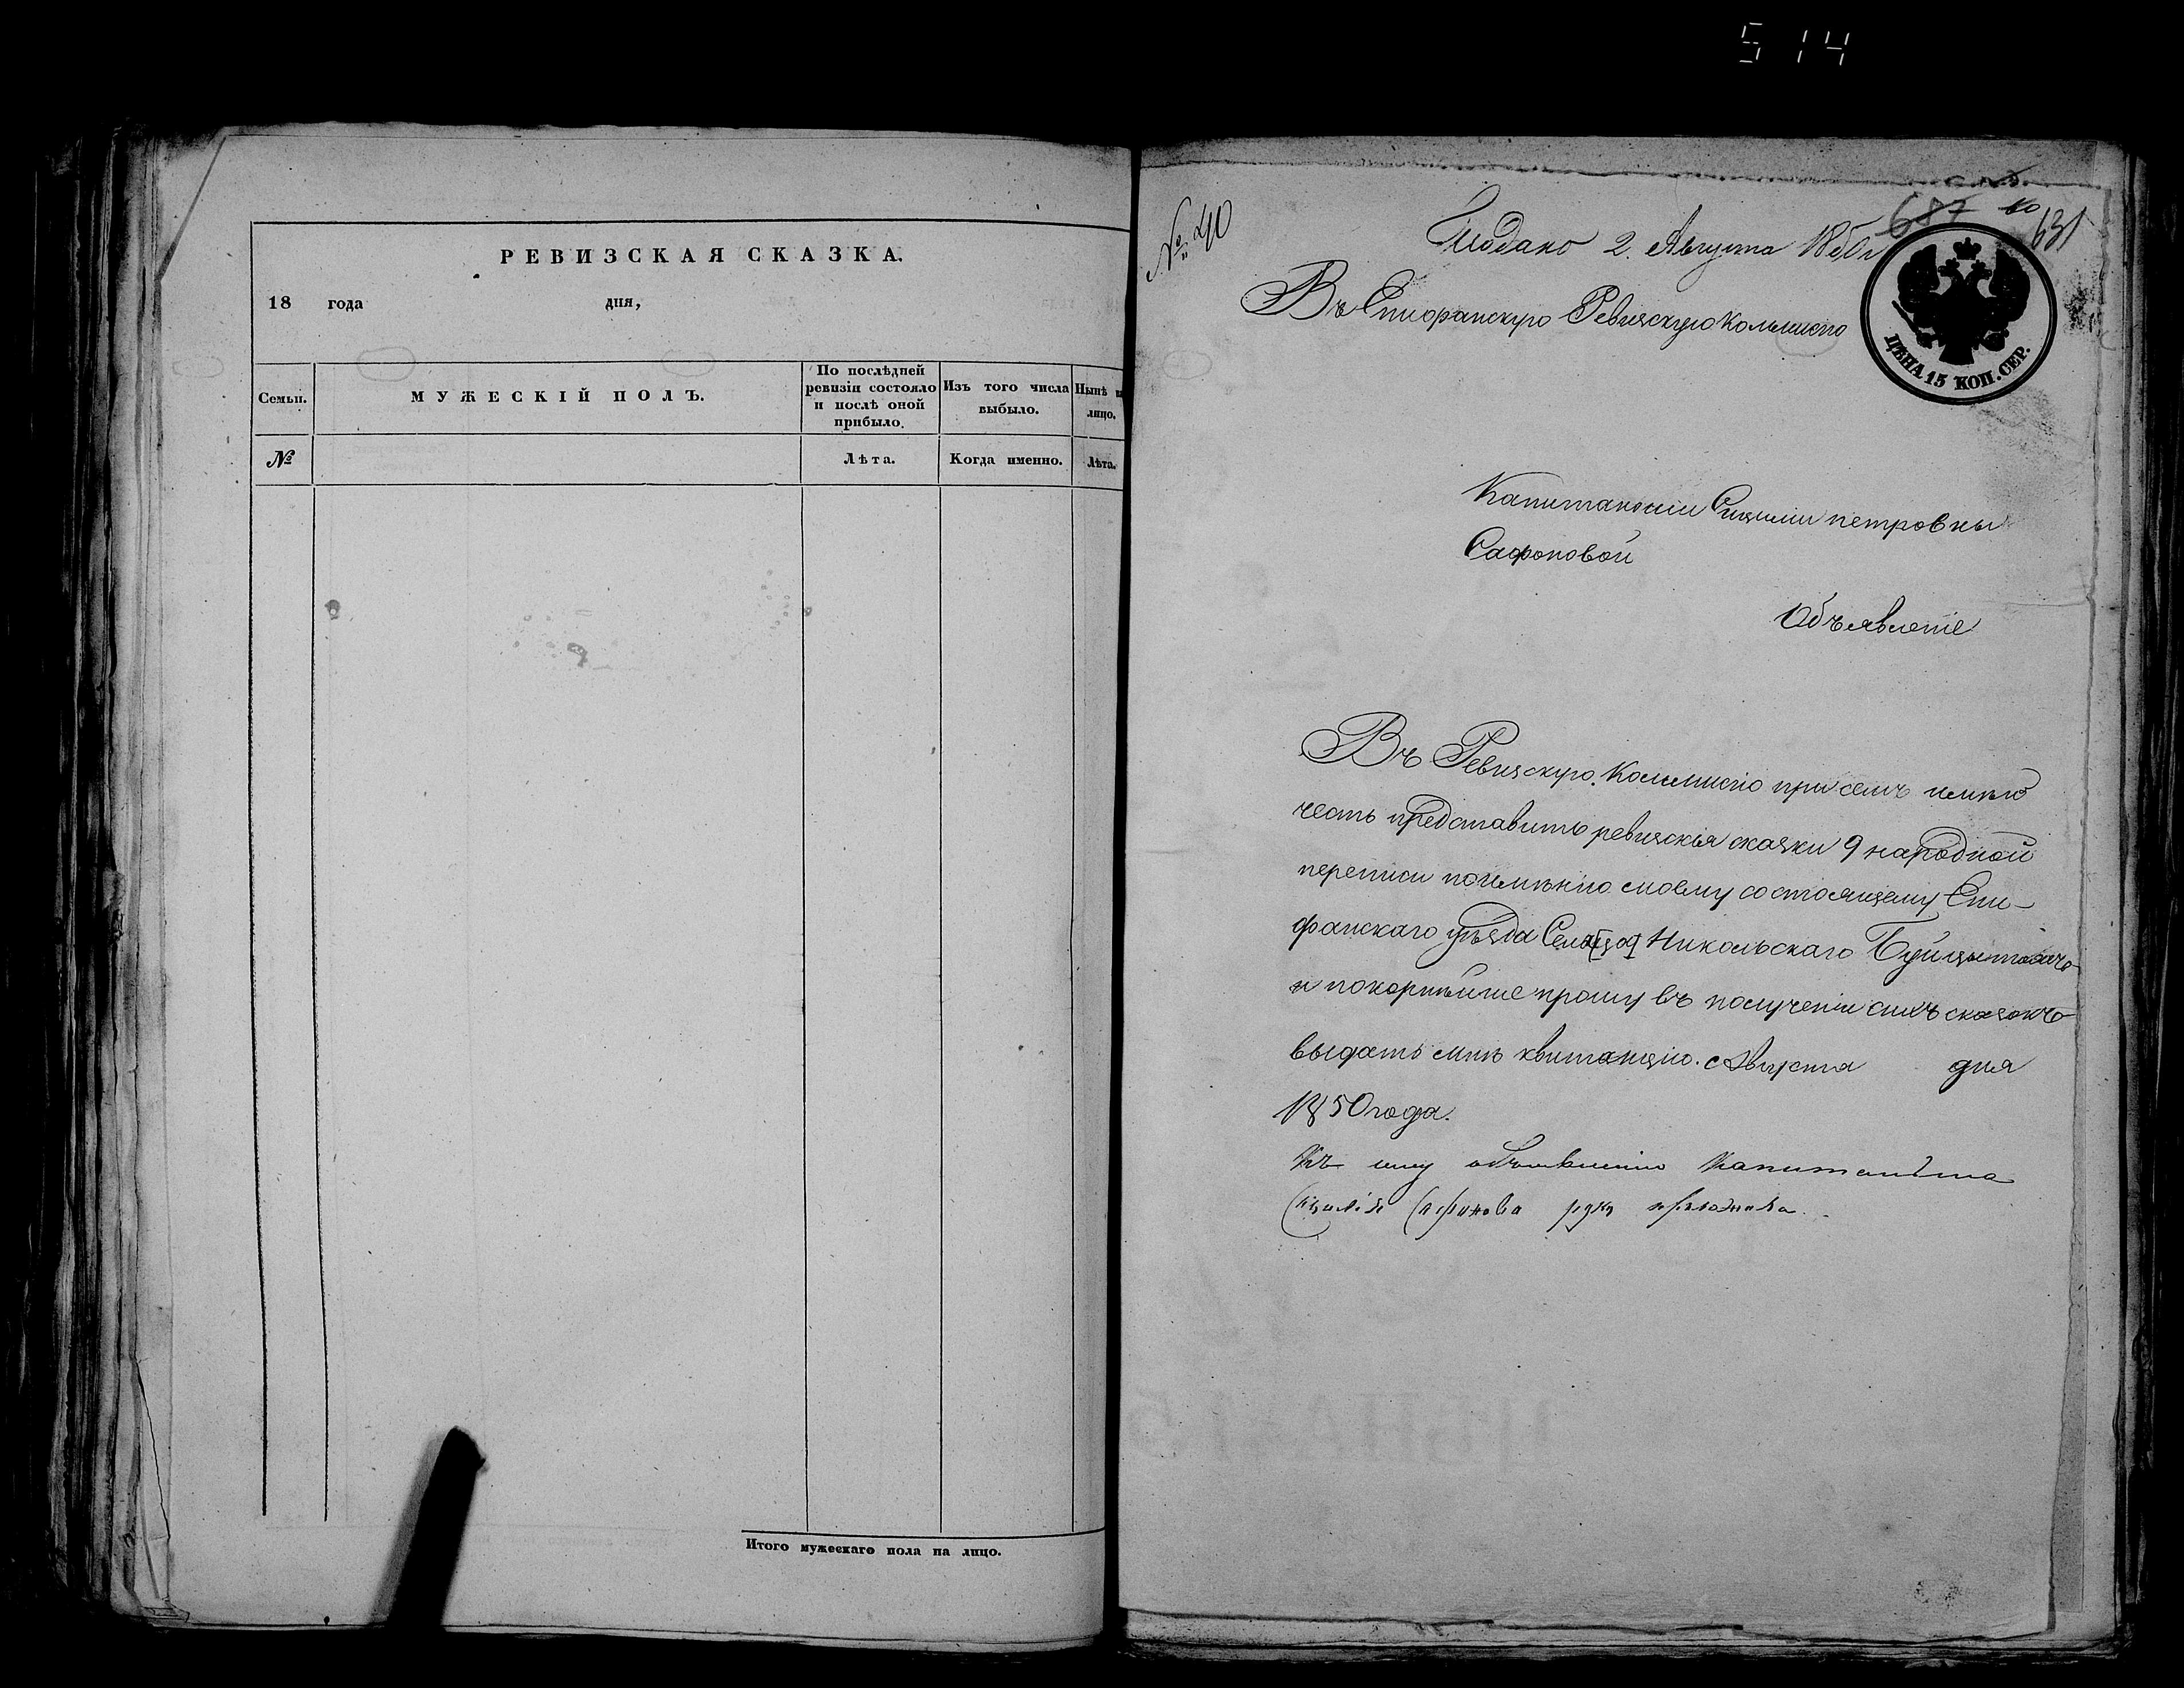 514
РЕВИЗСКАЯ СКАЗКА.
18 года дня,
Семьи.
МУЖЕСКІЙ ПОЛЪ.
По послѣдней
ревизіи состояло
и послѣ оной
прибыло.
Изъ того числа
выбыло.
Нынѣ н
лицо.
№
Лѣта.
Когда именно.
Лѣта.
Итого мужескаго пола на лицо.
№ 40
687
631
Подано 2. Августа 1850 г
Въ Епифанскую Ревизскую Комисию
ЦѢНА 15 КОП. СЕР.
Капитанши Сицилии петровны
Сафоновой
Объявление
Въ Ревизскую Коммисию при семъ имѣю
честь представить ревизския сказки 9 народной
переписи поимѣнию моему состоящему Епи-
фанскаго уѣзда Сельца Никольскаго
и покорнѣйше прошу въ получении сихъ сказокъ
выдать мнѣ квитанцию. Августа дня
1850 года.
Къ сему объявлению Капитанша
Сицилия Сафонова руку приложила